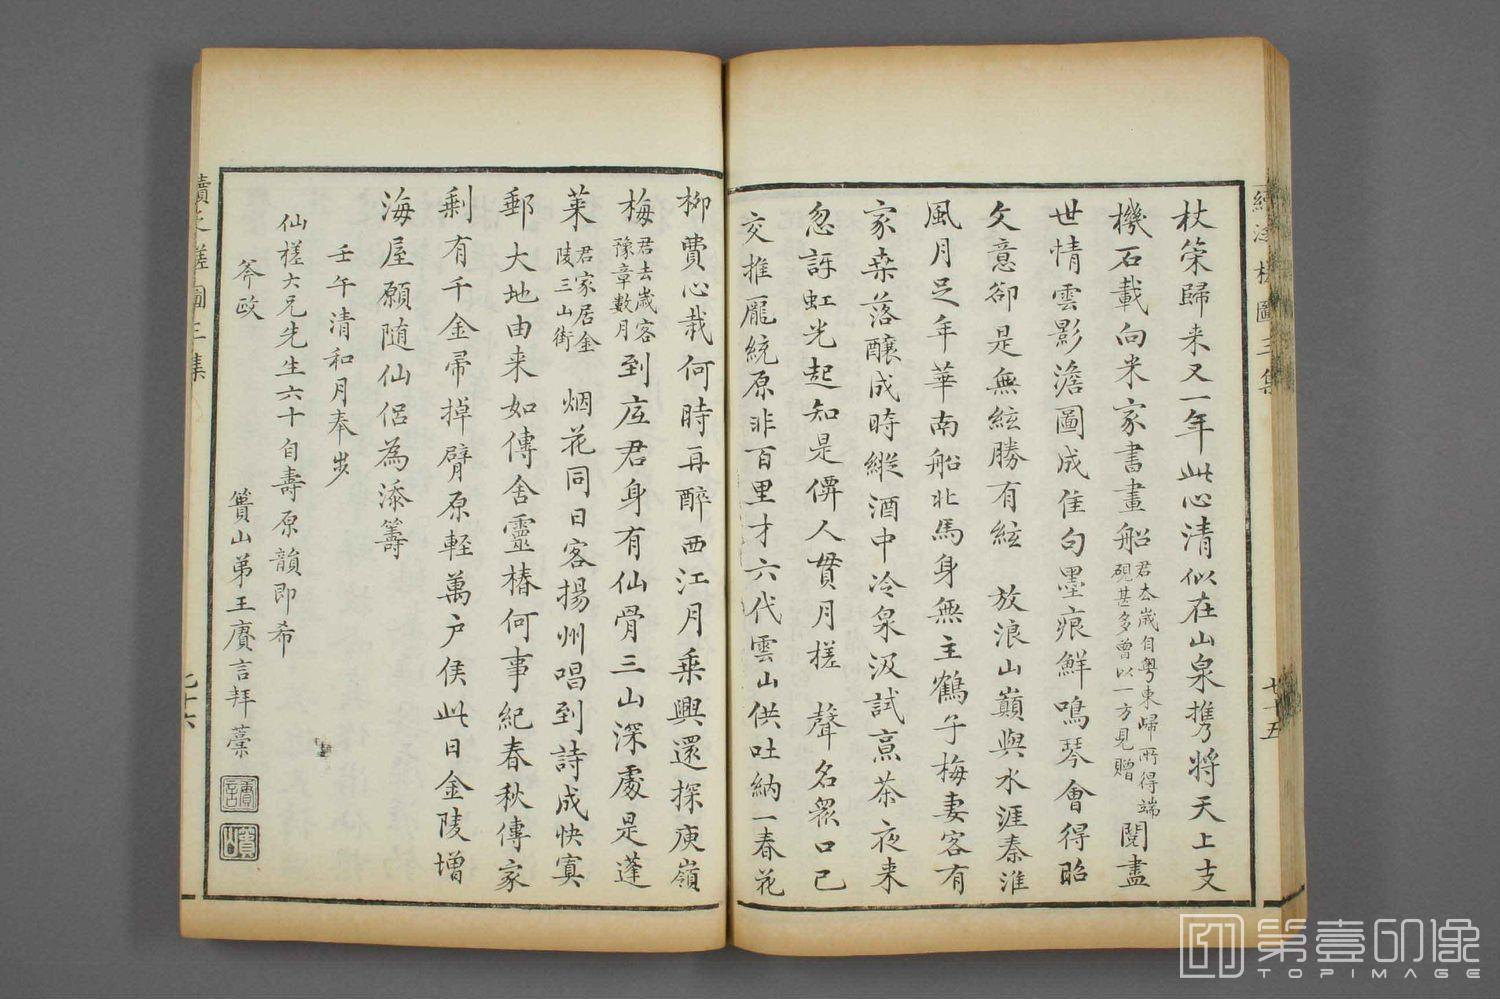 續泛槎圖三集
七十五
杖策歸来又一年此心清似在山泉携將天上支
機石載向米家書畫船君去歲自粤東歸所得端硯甚多曾以一方見贈閱盡
世情雲影澹圖成佳句墨痕鮮鳴琴會得昭
文意卻是無絃勝有絃 放浪山巔與水涯秦淮
風月足年華南船北馬身無主鶴子梅妻客有
家桒落釀成時縱酒中冷泉汲試烹茶夜来
忽訝虹光起知是儕人貫月槎 聲名眾口已
交推龎統原非百里才六代雲山供吐納一春花
柳費心栽何時再醉西江月乗興還探庾嶺
梅君去歲客豫章數月到㡳君身有仙骨三山深處是蓬
莱君家居金陵三山街 烟花同日客揚州唱到詩成快寘
郵大地由来如傳舍靈椿何事紀春秋傳家
剩有千金帚掉臂原軽萬户侯此日金陵增
海屋願随仙侣為添籌
壬午清和月奉步
仙槎大兄先生六十自壽原韻即希
斧政
簣山弟王賡言拜藁
賡言
簣山
續泛槎圖三集
七十六
第壹印像
TOPIMAGE